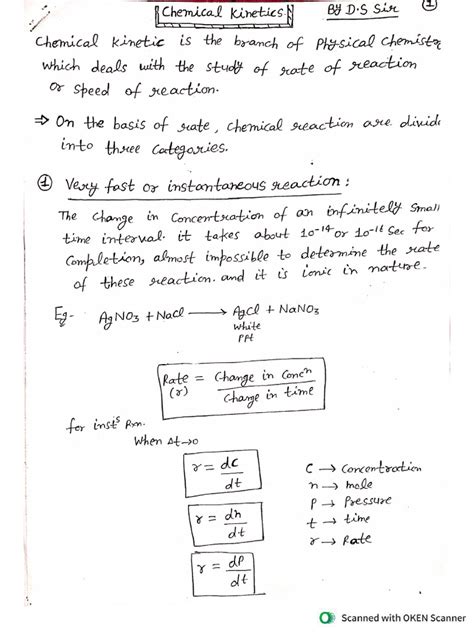 Chemical Kinetics By D.S Sir ①
Chemical Kinetic is the branch of Physical Chemistry
which deals with the study of rate of reaction
or speed of reaction.
⇒ On the basis of rate, Chemical reaction are divide
into three Categories.
① Very fast or instantaneous reaction :
The Change in Concentration of an infinitely Small
time interval. it takes about 10⁻¹⁴ or 10⁻¹⁶ Sec for
Completion, almost impossible to determine the rate
of these reaction. and it is ionic in nature.
Eg- AgNO₃ + NaCl ⟶ AgCl + NaNO₃
White
PPt
Rate = Change in Concn / Change in time
(r)
for instˢ Rxn.
When Δt→0
r = dc/dt
C → Concentration
n → mole
r = dn/dt
P → Pressure
t → time
r → Rate
r = dP/dt
Scanned with OKEN Scanner